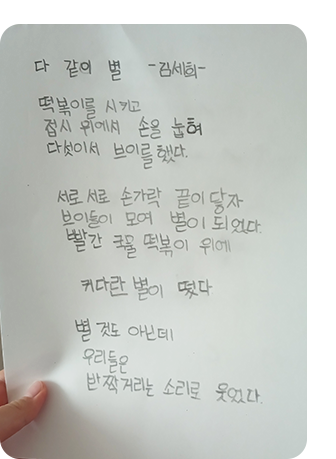 다 같이 별 -김세희-
떡볶이를 시키고
접시 위에서 손을 눕혀
다섯이서 브이를 했다.
서로 서로 손가락 끝이 닿자
브이들이 모여 별이 되었다.
빨간 국물 떡볶이 위에
커다란 별이 떴다
별 것도 아닌데
우리들은
반짝거리는 소리로 웃었다.